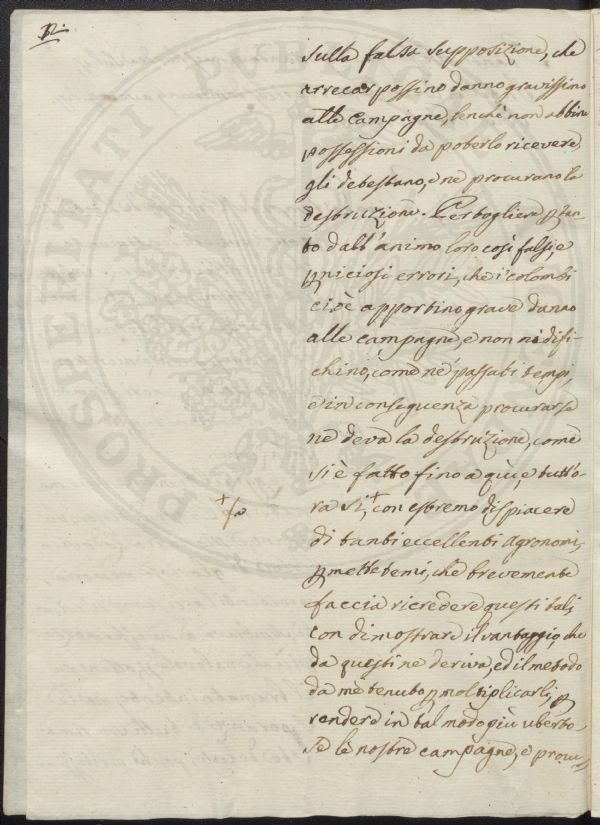 12.
sulla falsa supposizione, che
arrecar possino danno gravissimo
alle campagne, benchè non abbino
possessioni da poterlo ricevere,
gli detestano, e ne procurano la
destruzione. Per togliere ptan-
to dall'animo loro così falsi, e
pniciosi errori, che i colombi
cioè apportino grave danno
alle campagne, e non nidifi-
chino, come ne' passati tempi,
e in conseguenza procurarse
ne deva la destruzione, come
si è fatto fino a quì e tutto-
ra si,+ con estremo dispiacere
+ fa
di tanti eccellenti Agronomi,
pmettetemi, che brevemente
faccia ricredere questi tali,
con dimostrare il vantaggio, che
da questi ne deriva, ed il metodo
da mè tenuto p moltiplicarli, p
rendere in tal modo più uberto-
se le nostre campagne, e procu-
PROSPERITATI PUBLICAE